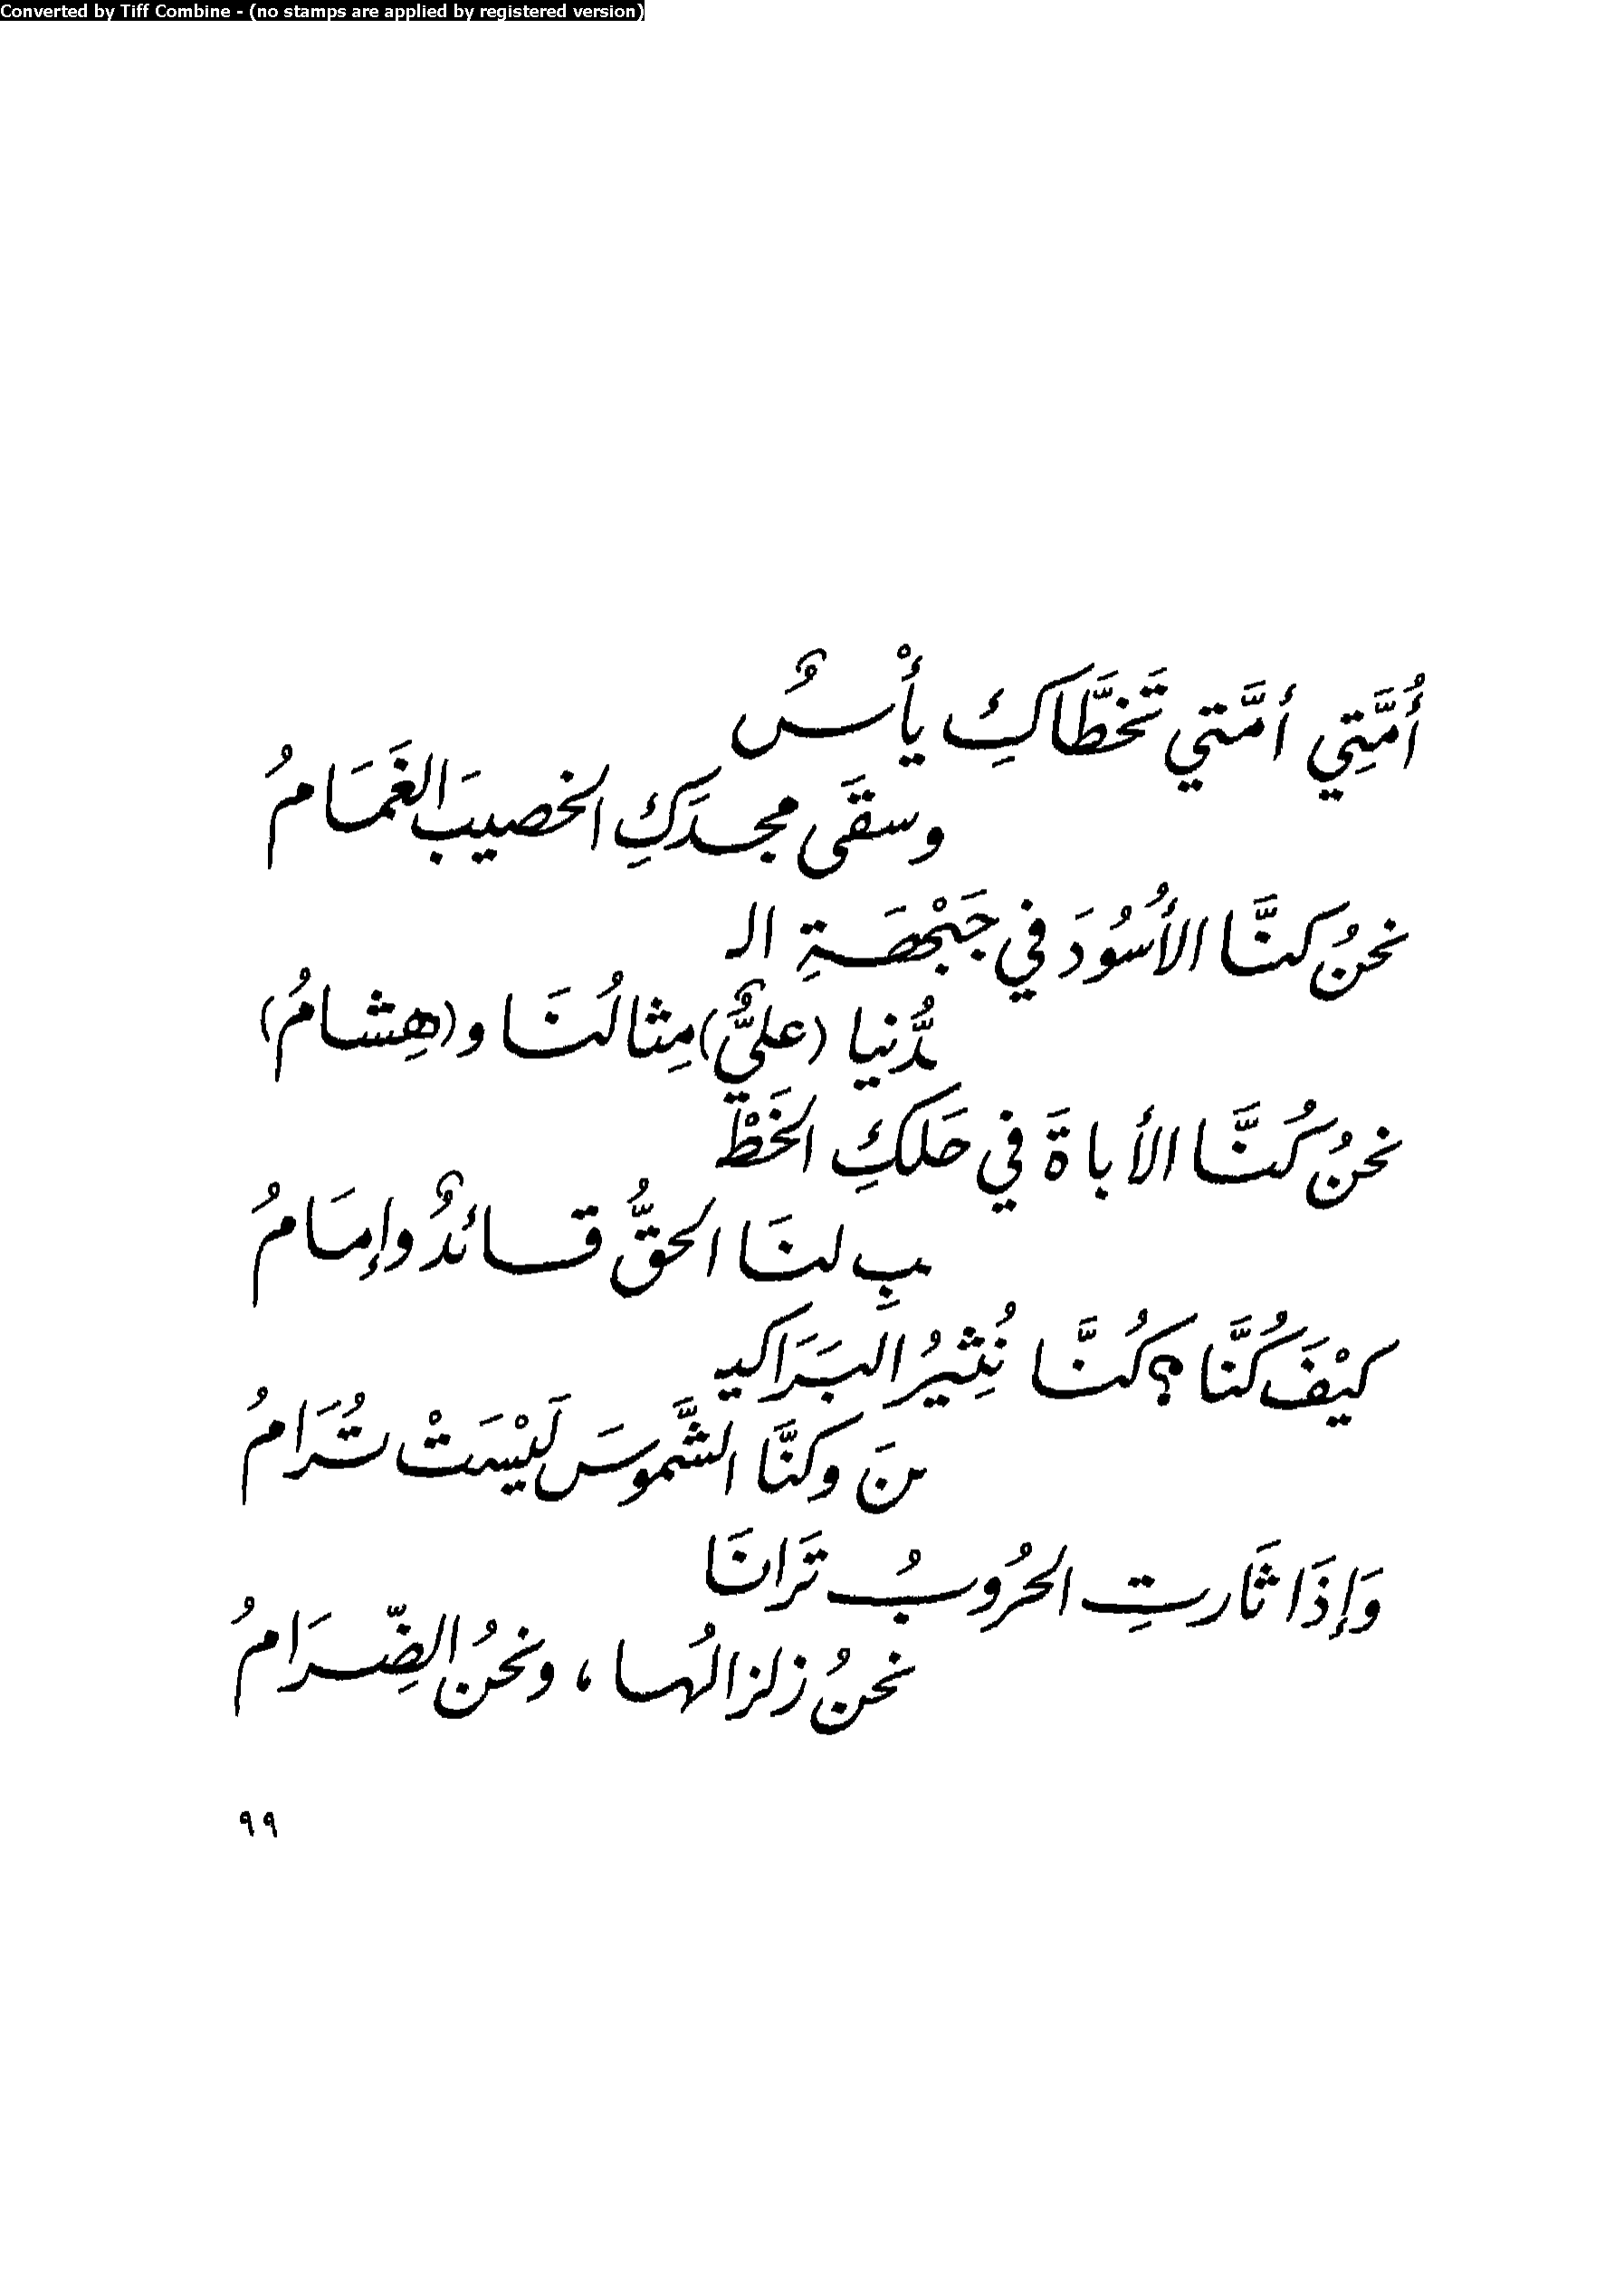 Converted by Tiff Combine - (no stamps are applied by registered version)
أُمَّتِي أمَّتي تَخطَّاكِ يأْسٌ
وسقَى مجدَكِ الخصيبَ الغَمَامُ
نحنُ كنَّا الأُسُودَ في جَبْهَةِ الـ
ـدُّنيا (عليٌّ) مِثالُنَا و(هِشامُ)
نحنُ كُنَّا الأباةَ في حَلكِ الخَطْـ
ـبِ لنَا الحقُّ قائدٌ وإمَامُ
كيْفَ كُنَّا؟ كُنَّا نُثِيرُ البَرَاكيـ
ـنَ وكنَّا الشَّموسَ لَيْسَتْ تُرَامُ
وَإِذَا ثَارتِ الحرُوبُ تَرَانَا
نحنُ زلزالُها، ونحنُ الضِّرَامُ
٩٩